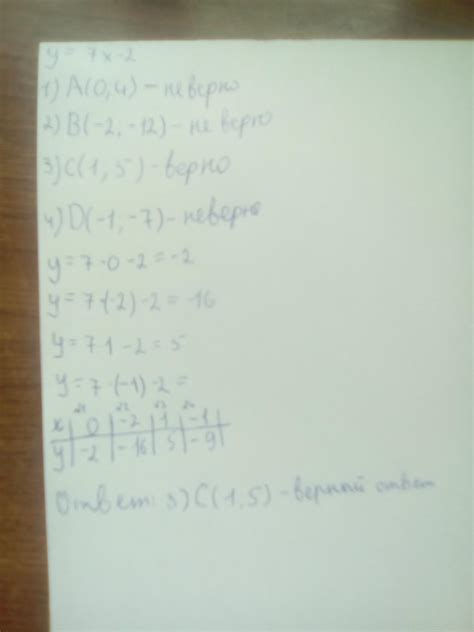 y = 7x-2
1) A(0,4) - неверно
2) B(-2,-12) - не верно
3) C(1,5) - верно
4) D(-1,-7) - неверно
y = 7·0-2 = -2
y = 7·(-2)-2 = -16
y = 7·1-2 = 5
y = 7·(-1)-2 =
x | 0 | -2 | 1 | -1 |
y | -2 | -16 | 5 | -9 |
Ответ: 3) C(1,5) - верный ответ